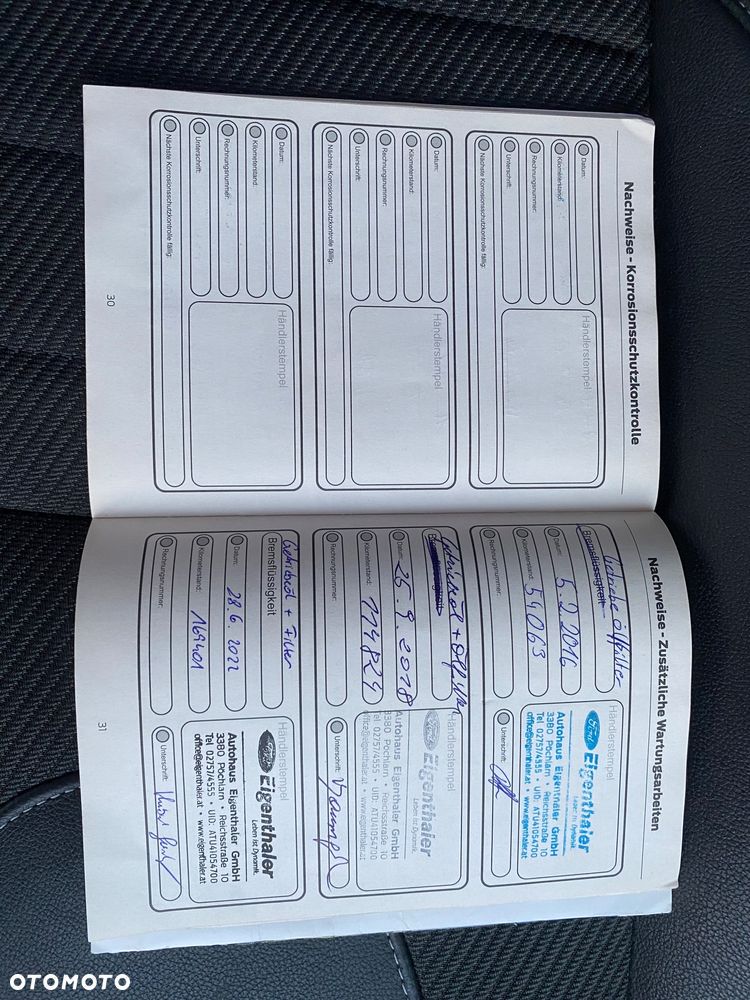 Nachweise - Korrosionsschutzkontrolle
Datum:
Kilometerstand:
Rechnungsnummer:
Unterschrift:
Nächste Korrosionsschutzkontrolle fällig:
Händlerstempel
Datum:
Kilometerstand:
Rechnungsnummer:
Unterschrift:
Nächste Korrosionsschutzkontrolle fällig:
Händlerstempel
Datum:
Kilometerstand:
Rechnungsnummer:
Unterschrift:
Nächste Korrosionsschutzkontrolle fällig:
Händlerstempel
30
Nachweise - Zusätzliche Wartungsarbeiten
Getriebe Ölfilter
Bremsflüssigkeit
Datum: 5.2.2016
Kilometerstand: 54063
Rechnungsnummer:
Händlerstempel
Ford Eigenthaler
Leben ist Dynamik.
Autohaus Eigenthaler GmbH
3380 Pöchlarn • Reichsstraße 10
Tel 02757/4555 • UID: ATU41054700
office@eigenthaler.at • www.eigenthaler.at
Unterschrift:
Bremsflüssigkeit
Datum: 25.9.2018
Kilometerstand: 114824
Rechnungsnummer:
Händlerstempel
Ford Eigenthaler
Leben ist Dynamik.
Autohaus Eigenthaler GmbH
3380 Pöchlarn • Reichsstraße 10
Tel 02757/4555 • UID: ATU41054700
office@eigenthaler.at • www.eigenthaler.at
Unterschrift:
Getriebeöl + Filter
Bremsflüssigkeit
Datum: 28.6.2022
Kilometerstand: 169401
Rechnungsnummer:
Händlerstempel
Ford Eigenthaler
Leben ist Dynamik.
Autohaus Eigenthaler GmbH
3380 Pöchlarn • Reichsstraße 10
Tel 02757/4555 • UID: ATU41054700
office@eigenthaler.at • www.eigenthaler.at
Unterschrift:
31
OTOMOTO